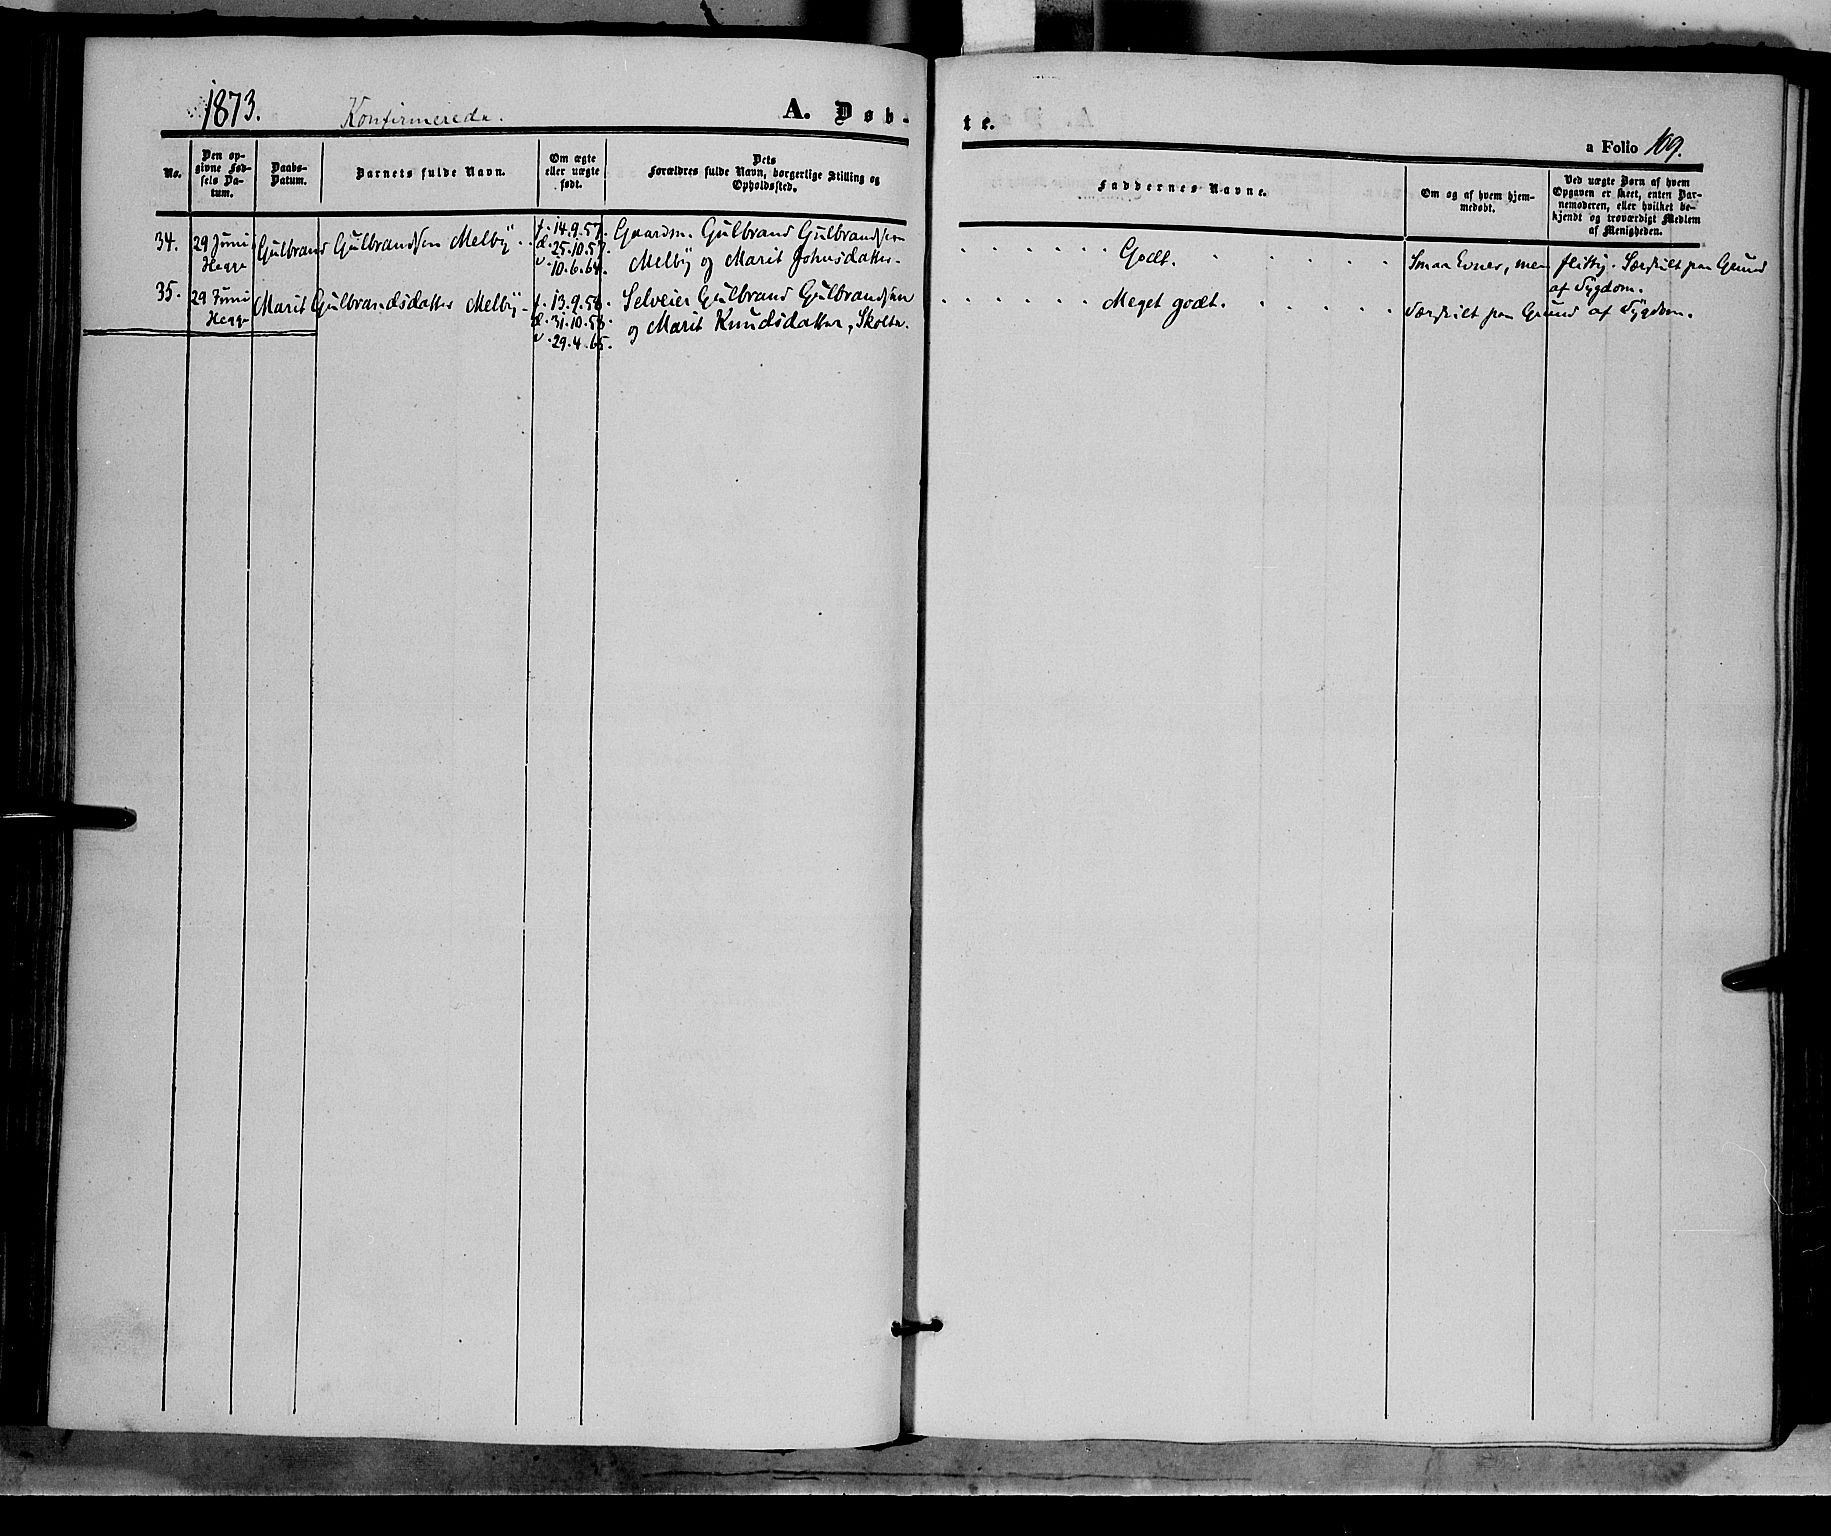 1873. Konfirmerede. A. Døb-
te.
a Folio 109.
No.
Den op-
givne Fød-
sels Da-
tum.
Daabs-
Datum.
Barnets fulde Navn.
Om ægte
eller uægte
født.
Dets
Forældres fulde Navn, borgerlige Stilling og
Opholdssted.
Faddernes Navne.
Om og af hvem hjem-
medøbt.
Ved uægte Børn af hvem
Opgaven er skeet, enten Bar-
nemoderen, eller hvilket be-
kjendt og troværdigt Medlem
af Menigheden.
34.
29 Juni
Hegge
Gulbrand Gulbrandsen Melby
f. 14.9.57.
d. 25.10.57.
v. 10.6.64.
Gaardm. Gulbrand Gulbrandsen
Melby og Marit Johnsdatter.
Godt.
Smaa Evner, men flittig. Særskilt paa Grund
af Sygdom.
35.
29 Juni
Hegge
Marit Gulbrandsdatter Melby
f. 13.9.58.
d. 31.10.58.
v. 29.4.65.
Selveier Gulbrand Gulbrandsen
og Marit Knudsdatter, Skolte.
Meget godt.
Særskilt paa Grund af Sygdom.